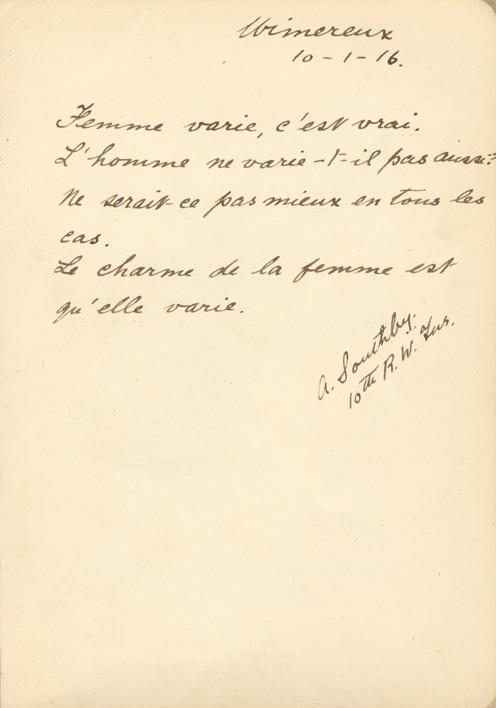 Wimereux
10-1-16.
Femme varie, c'est vrai.
L'homme ne varie-t-il pas aussi?
Ne serait-ce pas mieux en tous les
cas.
Le charme de la femme est
qu'elle varie.
A. Southby.
10th R. W. Fus.